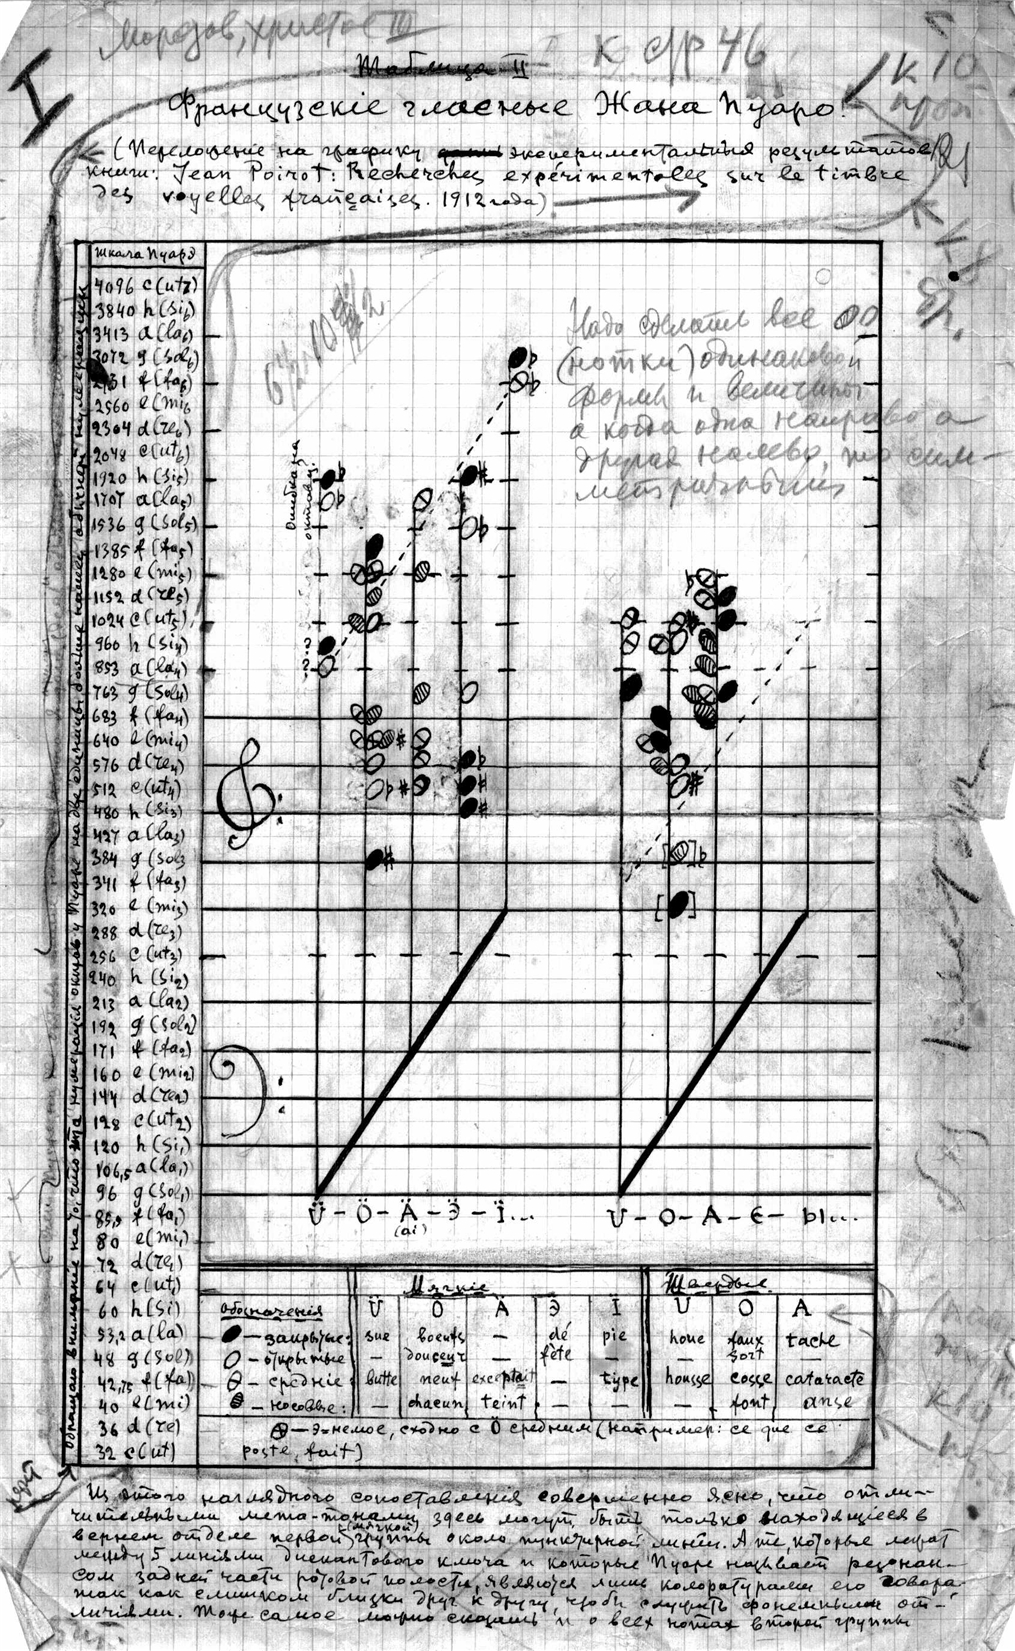 Морозов, Христос III
К с/р 46
Таблица II
Французскіе гласные Жана Пуаро.
(Переложеніе на графику экспериментальныя результатов
книги: Jean Poirot: Recherches expérimentales sur le timbre
des voyelles françaises. 1912 года)
К 10
I
Надо сделать все
(нотки) одинаковой
формы и величины
а когда одна направо а
другая налево, то сим-
метричными
Ошибка на
октаву?
Шкала Пуаро
4096 c (ut7)
3840 h (si6)
3413 a (la6)
3072 g (sol6)
2731 f (fa6)
2560 e (mi6
2304 d (re6)
2048 c (ut6)
1920 h (si5)
1707 a (la5)
1536 g (sol5)
1385 f (fa5)
1280 e (mi5)
1152 d (re5)
1024 c (ut5)
960 h (si4)
853 a (la4)
763 g (sol4)
683 f (fa4)
640 e (mi4)
576 d (re4)
512 c (ut4)
480 h (si3)
427 a (la3)
384 g (sol3
341 f (fa3)
320 e (mi3)
288 d (re3)
256 c (ut3)
240 h (si2)
213 a (la2)
192 g (sol2)
171 f (fa2)
160 e (mi2)
144 d (re2)
128 c (ut2)
120 h (si1)
106,5 a (la1)
96 g (sol1)
85,3 f (fa1)
80 e (mi1)
72 d (re1)
64 c (ut1)
60 h (si)
53,2 a (la)
48 g (sol)
42,75 f (fa)
40 e (mi)
36 d (re)
32 c (ut)
Обращаю вниманіе на то, что эта нумерація октав у Пуаро на две единицы больше нашей обычной нумерации
Ü - Ö - Ä - Э - Ï...
(ai)
U - O - A - Є - Ы...
Мягкіе Твердые
Обозначенія Ü Ö Ä Э Ï U O A
– закрытые: sue boeufs – dé pie houe faux tache
– открытые – douceur – fête – – sort –
– средніе: butte neuf exceptait – type housse cosse cataracte
– носовые: – chacun teint – – – font anse
– Э-немое, сходно с Ö средним (например: ce que ce
poste, fait)
Из этого наглядного сопоставленія совершенно ясно, что отли-
чительными мета-тонами здесь могут быть только находящіеся в
верхнем отделе первой (мягкой) группы около пунктирной линии. А те, которые лежат
между 5 линіями дискантового ключа и которые Пуаро называет резонан-
сом задней части ротовой полости, являются лишь колоратурами его говора
так как слишком близки друг к другу, чтобы служить фонемными от-
личіями. Тоже самое можно сказать и о всех нотах второй группы